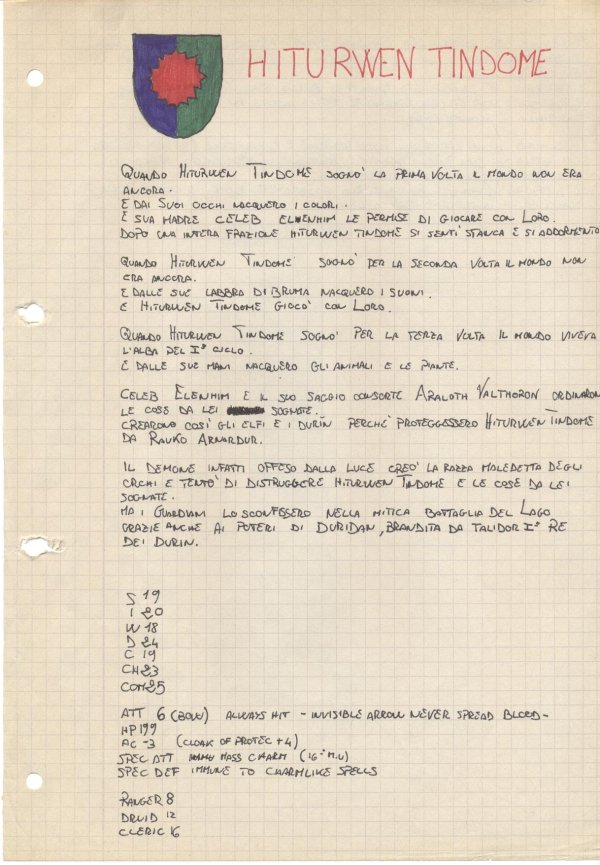 HITURWEN TINDOME
QUANDO HITURWEN TINDOME SOGNO' LA PRIMA VOLTA IL MONDO NON ERA
ANCORA.
E DAI SUOI OCCHI NACQUERO I COLORI.
E SUA MADRE CELEB ELENHIM LE PERMISE DI GIOCARE CON LORO.
DOPO UNA INTERA FRAZIONE HITURWEN TINDOME SI SENTI' STANCA E SI ADDORMENTO'
QUANDO HITURWEN TINDOME SOGNO' PER LA SECONDA VOLTA IL MONDO NON
ERA ANCORA.
E DALLE SUE LABBRA DI BRUMA NACQUERO I SUONI.
E HITURWEN TINDOME GIOCO' CON LORO.
QUANDO HITURWEN TINDOME SOGNO' PER LA TERZA VOLTA IL MONDO VIVEVA
L'ALBA DEL I° CICLO.
E DALLE SUE MANI NACQUERO GLI ANIMALI E LE PIANTE.
CELEB ELENHIM E IL SUO SAGGIO CONSORTE ARALOTH VALTHORON ORDINARONO
LE COSE DA LEI SOGNATE.
CREARONO COSI' GLI ELFI E I DURIN PERCHE' PROTEGGESSERO HITURWEN TINDOME
DA RAUKO ARNARDUR.
IL DEMONE INFATTI OFFESO DALLA LUCE CREO' LA RAZZA MALEDETTA DEGLI
ORCHI E TENTO' DI DISTRUGGERE HITURWEN TINDOME E LE COSE DA LEI
SOGNATE.
MA I GUARDIANI LO SCONFISSERO NELLA MITICA BATTAGLIA DEL LAGO
GRAZIE ANCHE AI POTERI DI DURIDAN, BRANDITA DA TALIDOR I° RE
DEI DURIN.
S 19
I 20
W 18
D 24
C 19
CH 23
COM 25
ATT 6 (BOW) ALWAYS HIT - INVISIBLE ARROW NEVER SPREAD BLOOD -
HP 199
AC -3 (CLOAK OF PROTEC +4)
SPEC ATT MASS CHARM (16° M.U)
SPEC DEF IMMUNE TO CHARMLIKE SPELLS
RANGER 8
DRUID 12
CLERIC 16